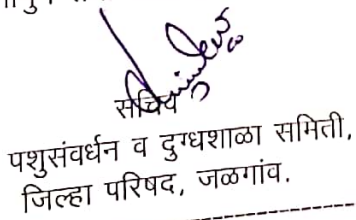 सचिव
पशुसंवर्धन व दुग्धशाळा समिती,
जिल्हा परिषद, जळगांव.